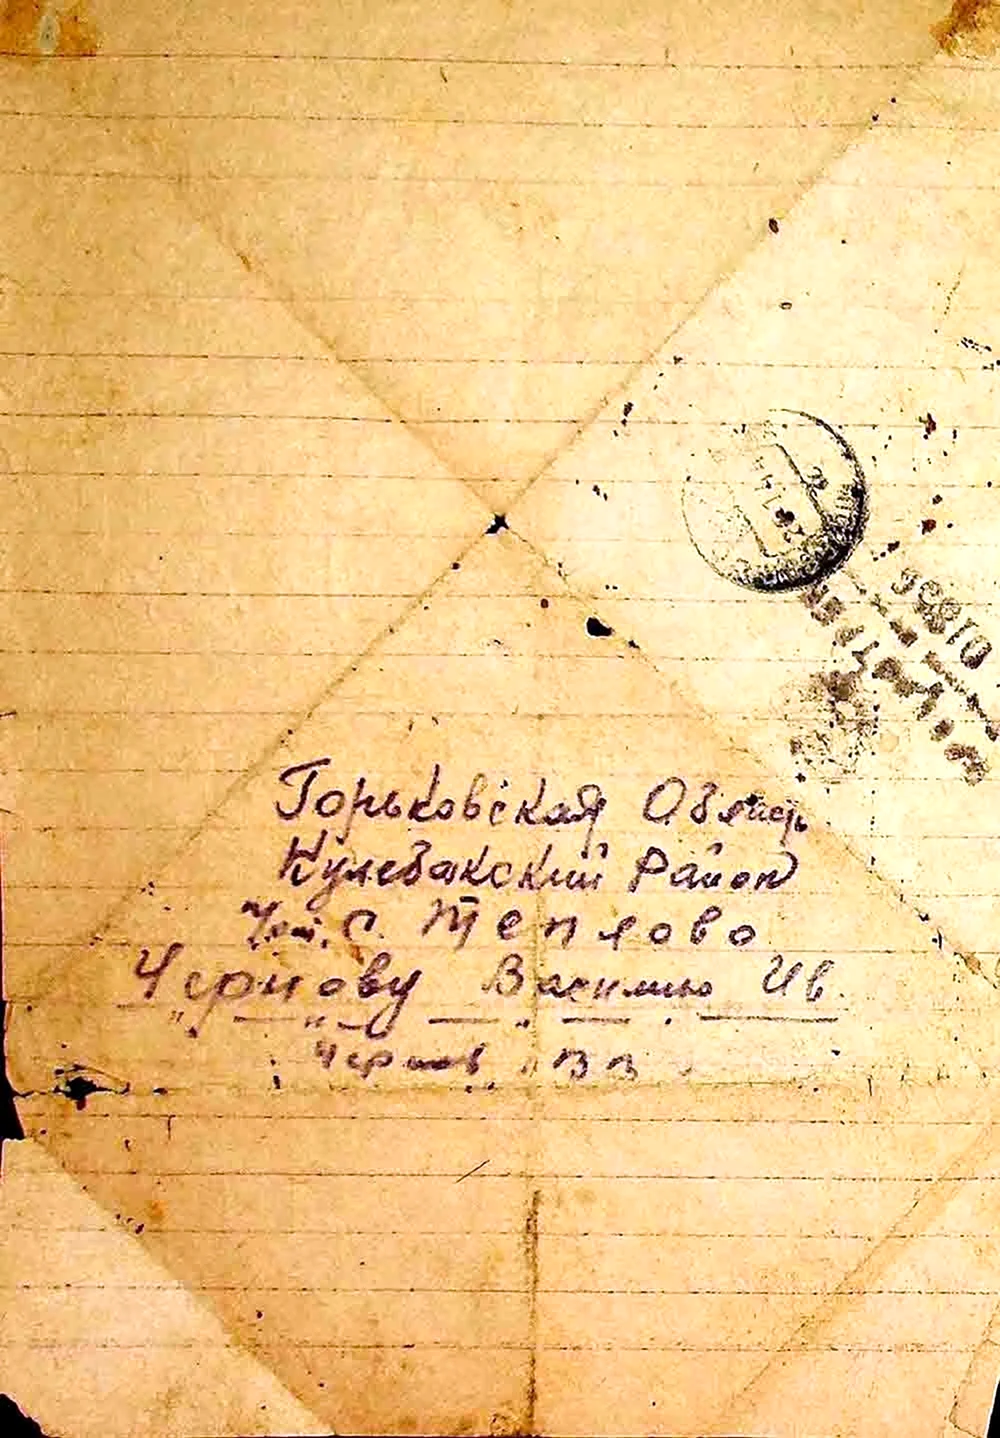 01836
Горьковская Область
Кулебакский Район
с. Теплово
Чернову Василию Ив.
Чернов ВВ